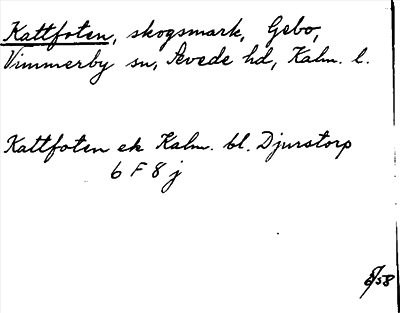 Kattfoten, skogsmark, Gebo,
Vimmerby sn, Sevede hd, Kalm. l.
Kattfoten ek Kalm. bl. Djurstorp
6 F 8 j
8/58